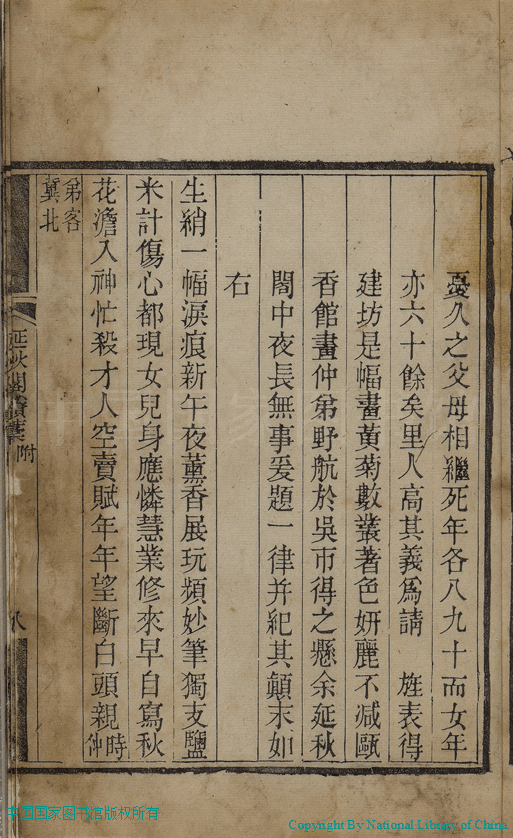 憂久之父母相繼死年各八九十而女年
亦六十餘矣里人高其義爲請　旌表得
建坊是幅畫黃菊數叢著色妍麗不减甌
香館畫仲弟野航於吳市得之懸余延秋
閣中夜長無事爰題一律并紀其顛末如
右
生綃一幅淚痕新午夜薰香展玩頻妙筆獨支鹽
米計傷心都現女兒身應憐慧業修來早自寫秋
花澹入神忙殺才人空賣賦年年望斷白頭親時仲
弟客
冀北
延秋閣賸藁 附
八
中国国家图书馆版权所有
Copyright By National Library of China